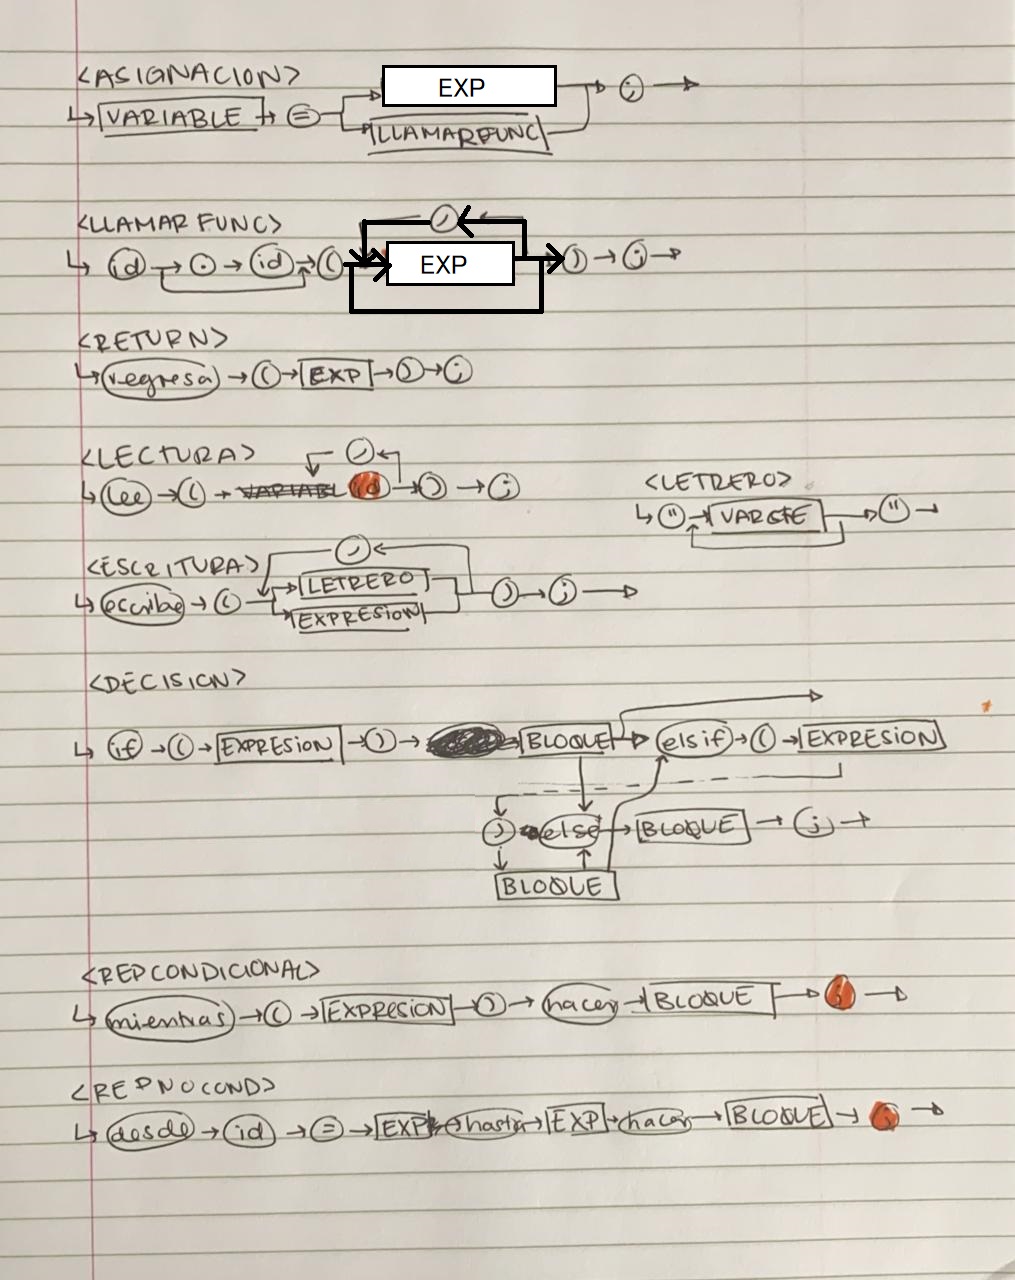 <ASIGNACION>
VARIABLE = EXP ;
LLAMARFUNC
<LLAMAR FUNC>
,
id . id ( EXP ) ;
<RETURN>
regresa ( EXP ) ;
<LECTURA>
,
lee ( VARIABL id ) ;
<LETRERO>
" VARCTE "
<ESCRITURA>
,
escribe ( LETRERO ) ;
EXPRESION
<DECISION>
if ( EXPRESION ) BLOQUE elsif ( EXPRESION
) else BLOQUE ;
BLOQUE
<REPCONDICIONAL>
mientras ( EXPRESION ) hacer BLOQUE ;
<REPNOCOND>
desde id = EXP hasta EXP hacer BLOQUE ;